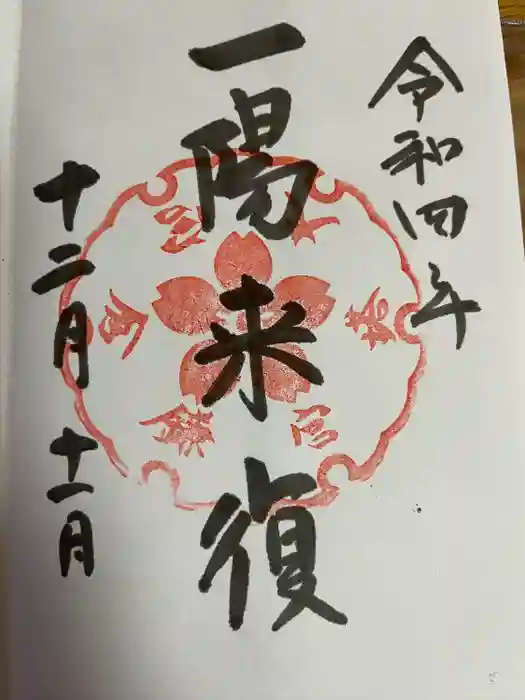 令和四年
一陽来復
十二月十一月